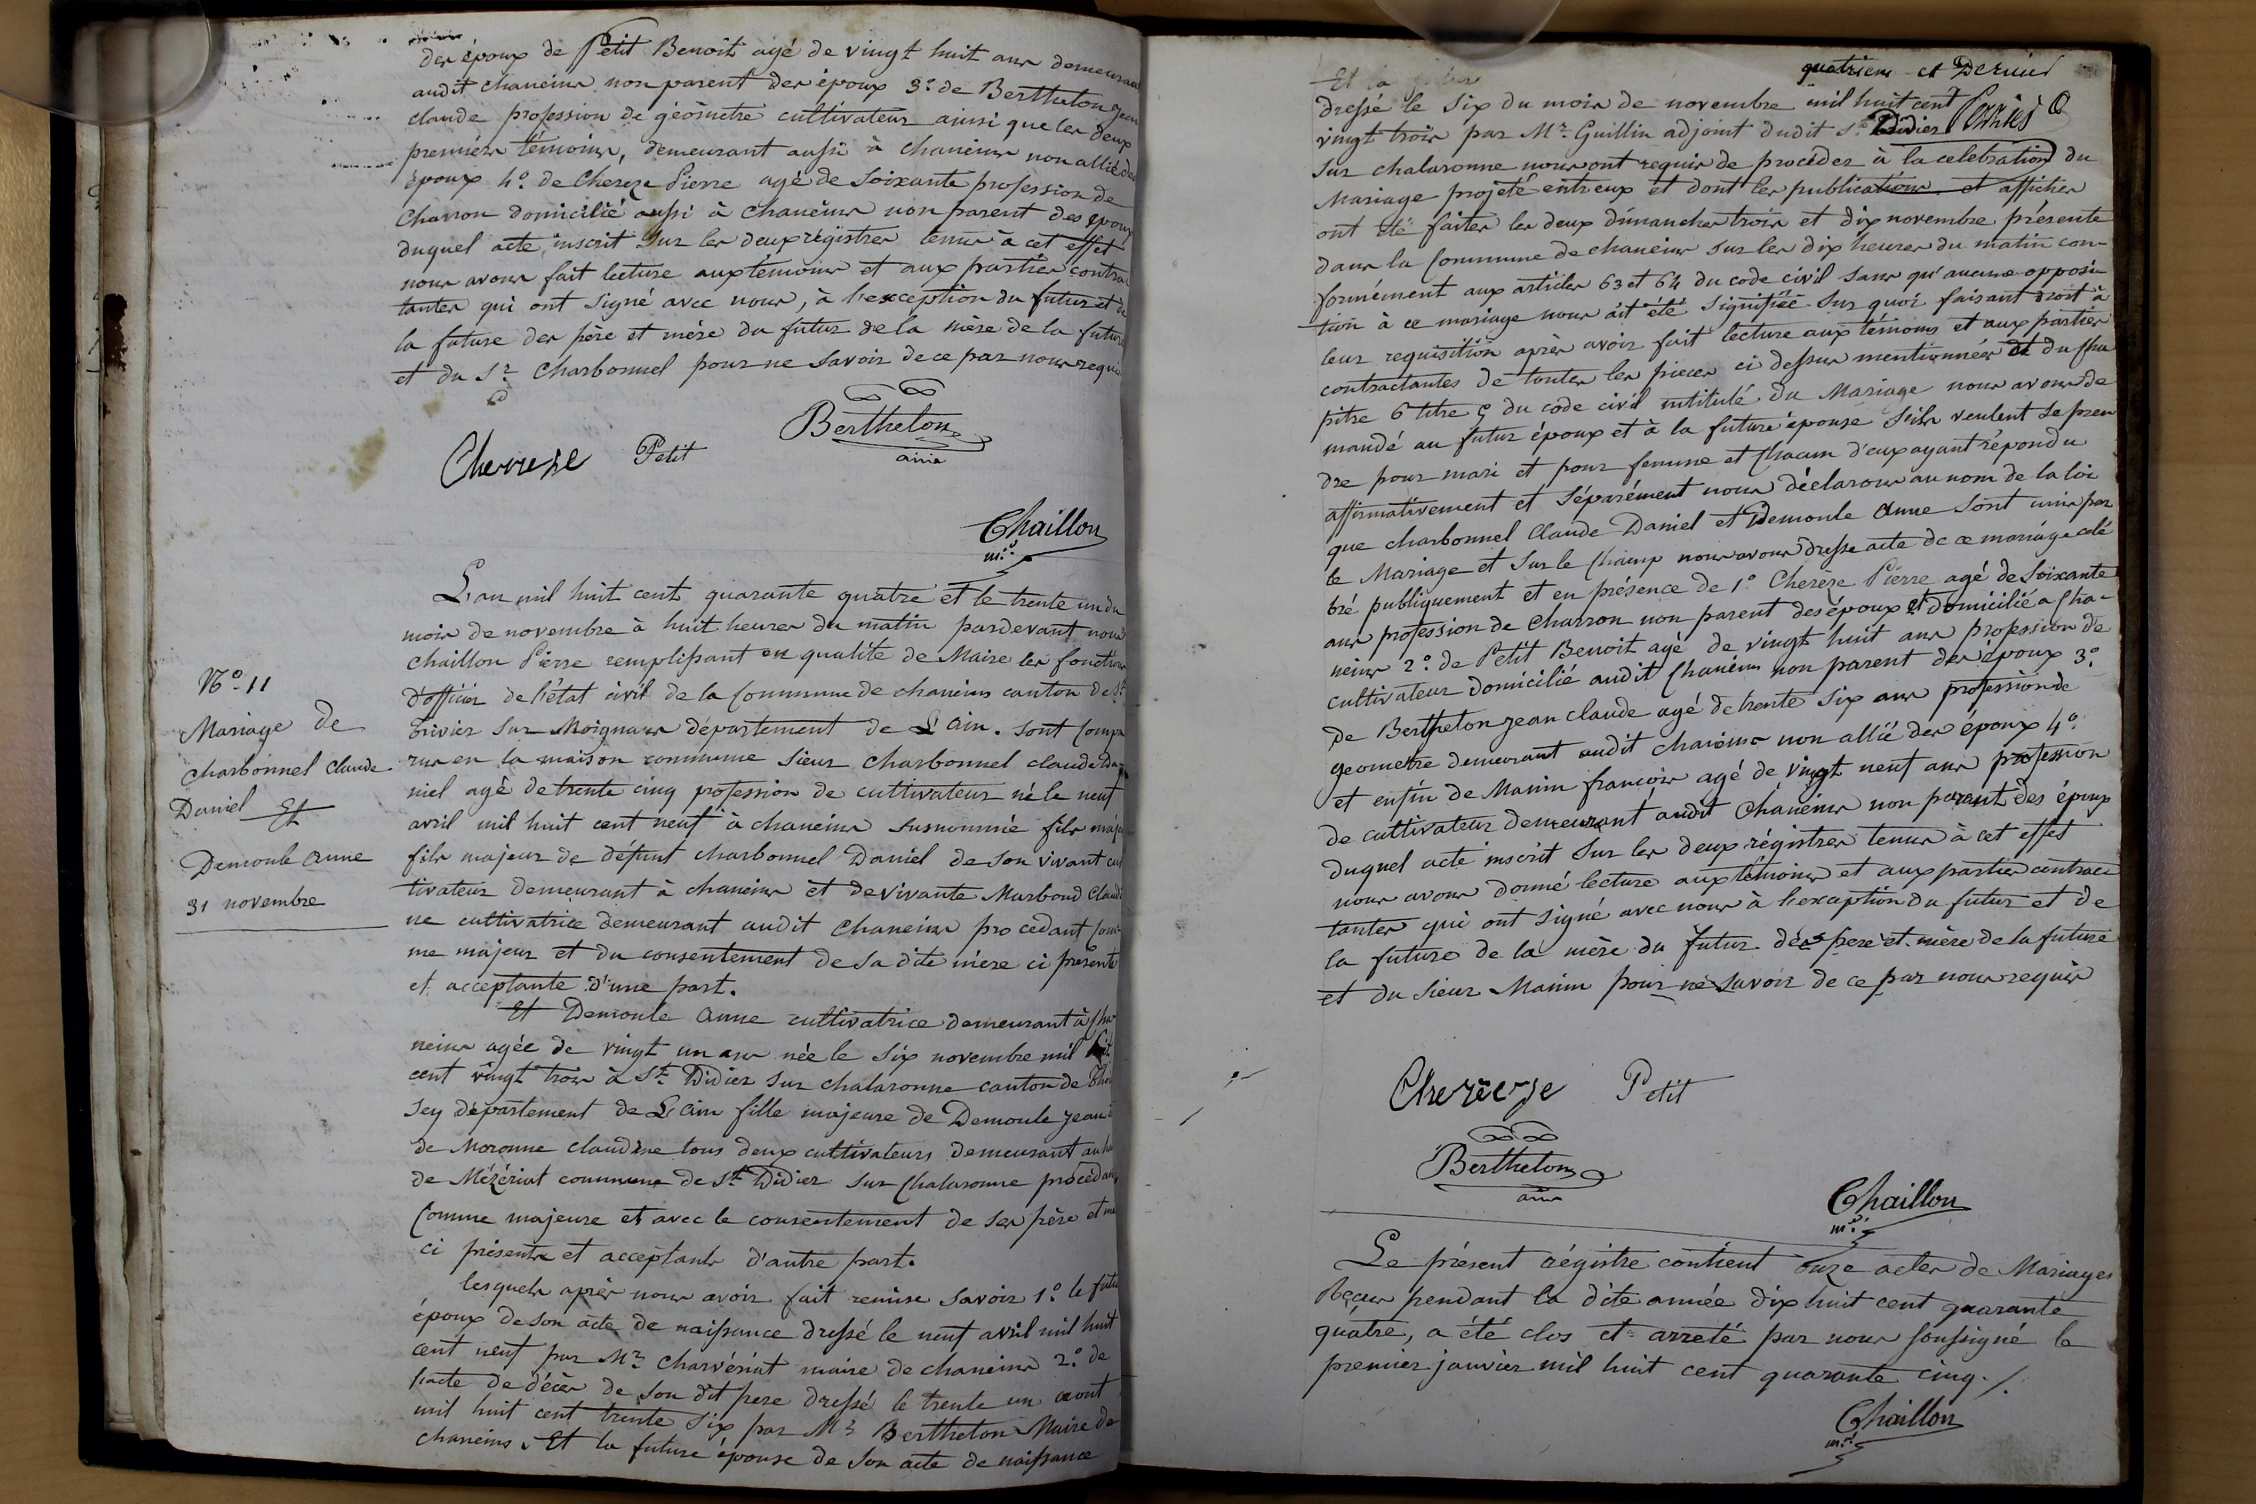 des époux de Petit Benoît agé de vingt huit ans demeurant
audit chaneins non parent des époux 3.° de Berthelon jean
claude profession de géomètre cultivateur ainsi que les deux
premiers témoins, demeurant aussi à chaneins non allié des
époux 4.° de Chereze Pierre agé de soixante profession de
Charron domicilié aussi à chaneins non parent des époux
duquel acte inscrit sur les deux régistres tenus à cet effet
nous avons fait lecture aux témoins et aux parties contrac
tantes qui ont signé avec nous, à l'exception du futur et de
la future des père et mère du futur de la mère de la future
et du Sr. Charbonnel pour ne savoir de ce par nous requis
Berthelon
Chereze Petit
Chaillon
mre.
L'an mil huit cent quarante quatre et le trente un du
mois de novembre à huit heures du matin pardevant nous
Chaillon Pierre remplissant en qualité de Maire les fonctions
d'officier de l'état civil de la Commune de chaneins canton de St.
Trivier sur Moignans département de L'ain. sont compa
rus en la maison commune sieur Charbonnel claude Da
niel agé de trente cinq profession de cultivateur né le neuf
avril mil huit cent neuf à chaneins susnommé fils majeur
fils majeur de défunt charbonnel Daniel de son vivant cul
tivateur demeurant à chaneins et de vivante Marboud Claudi
ne cultivatrice demeurant audit Chaneins procedant com
me majeur et du consentement de sa dite mère ci présente
et acceptante d'une part.
Et Demoule Anne cultivatrice demeurant à Cha
neins agée de vingt un ans née le six novembre mil huit
cent vingt trois à St. Didier sur chalaronne canton de Thoi
sey département de L'ain fille majeure de Demoule jean et
de Moronne claudine tous deux cultivateurs demeurant au
de Mézériat commune de St. Didier sur Chalaronne procédant
Comme majeure et avec le consentement de ses père et mère
ci présents et acceptants d'autre part.
lesquels après nous avoir fait remise savoir 1.° le futur
époux de son acte de naissance dressé le neuf avril mil huit
cent neuf par Mr. Charvériat maire de chaneins 2.° de
l'acte de décès de son dit pere dressé le trente un aout
mil huit cent trente six par Mr. Berthelon Maire de
chaneins. Et la future épouse de son acte de naissance
N°. 11
Mariage de
Charbonnel Claude
Daniel Et
Demoule Anne
31 novembre
quatrieme et Dernier
Et la
dressé le six du mois de novembre mil huit cent
vingt trois par Mr. Guillin adjoint dudit St. Didier
sur chalaronne nous ont requis de procéder à la celebration du
Mariage projeté entreux et dont les publications et affiches
ont été faites les deux dimanches trois et dix novembre présente
dans la Commune de chaneins sur les dix heures du matin con-
formément aux articles 63 et 64 du code civil sans qu'aucune opposi
tion à ce mariage nous ait été signifiée sur quoi faisant droit à
leur requisition après avoir fait lecture aux témoins et aux parties
contractantes de toutes les pieces ci dessus mentionnées et du cha
pitre 6 titre 5 du code civil intitulé du Mariage nous avons de
mandé au futur époux et à la future épouse s'ils veulent se pren
dre pour mari et pour femme et chacun d'eux ayant répondu
affirmativement et séparément nous déclarons au nom de la loi
que charbonnel Claude Daniel et Demoule Anne sont unis par
le Mariage et sur le champ nous avons dressé acte de ce mariage célé
bré publiquement et en présence de 1.° Cherèze Pierre agé de soixante
ans profession de Charron non parent des époux et domicilié à Cha-
neins 2.° de Petit Benoit agé de vingt huit ans profession de
cultivateur domicilié audit Chaneins non parent des époux 3.°
de Berthelon jean claude agé de trente six ans profession de
géometre demeurant audit chaneins non allié des époux 4.°
et enfin de Manin francois agé de vingt neuf ans profession
de cultivateur demeurant audit Chaneins non parent des époux
duquel acte inscrit sur les deux régistres tenus à cet effet
nous avons donné lecture aux témoins et aux parties contrac
tantes qui ont signé avec nous à l'exception du futur et de
la future de la mère du futur des pere et mère de la future
et du sieur Manin pour ne savoir de ce par nous requis
Cherèze Petit
Berthelon
Chaillon
mre.
Le présent régistre contient onze actes de Mariages
Reçus pendant la dite année dix huit cent quarante
quatre, a été clos et arreté par nous soussigné le
premier janvier mil huit cent quarante cinq./.
Chaillon
mre.